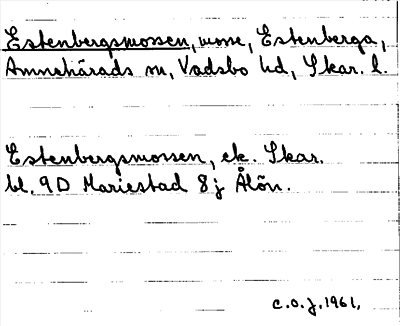 Estenbergsmossen, mosse, Estenberga,
Amnehärads sn, Vadsbo hd, Skar. l.
Estenbergsmossen, ek. Skar.
bl. 9D Mariestad 8j Ålön.
C.O.J. 1961.